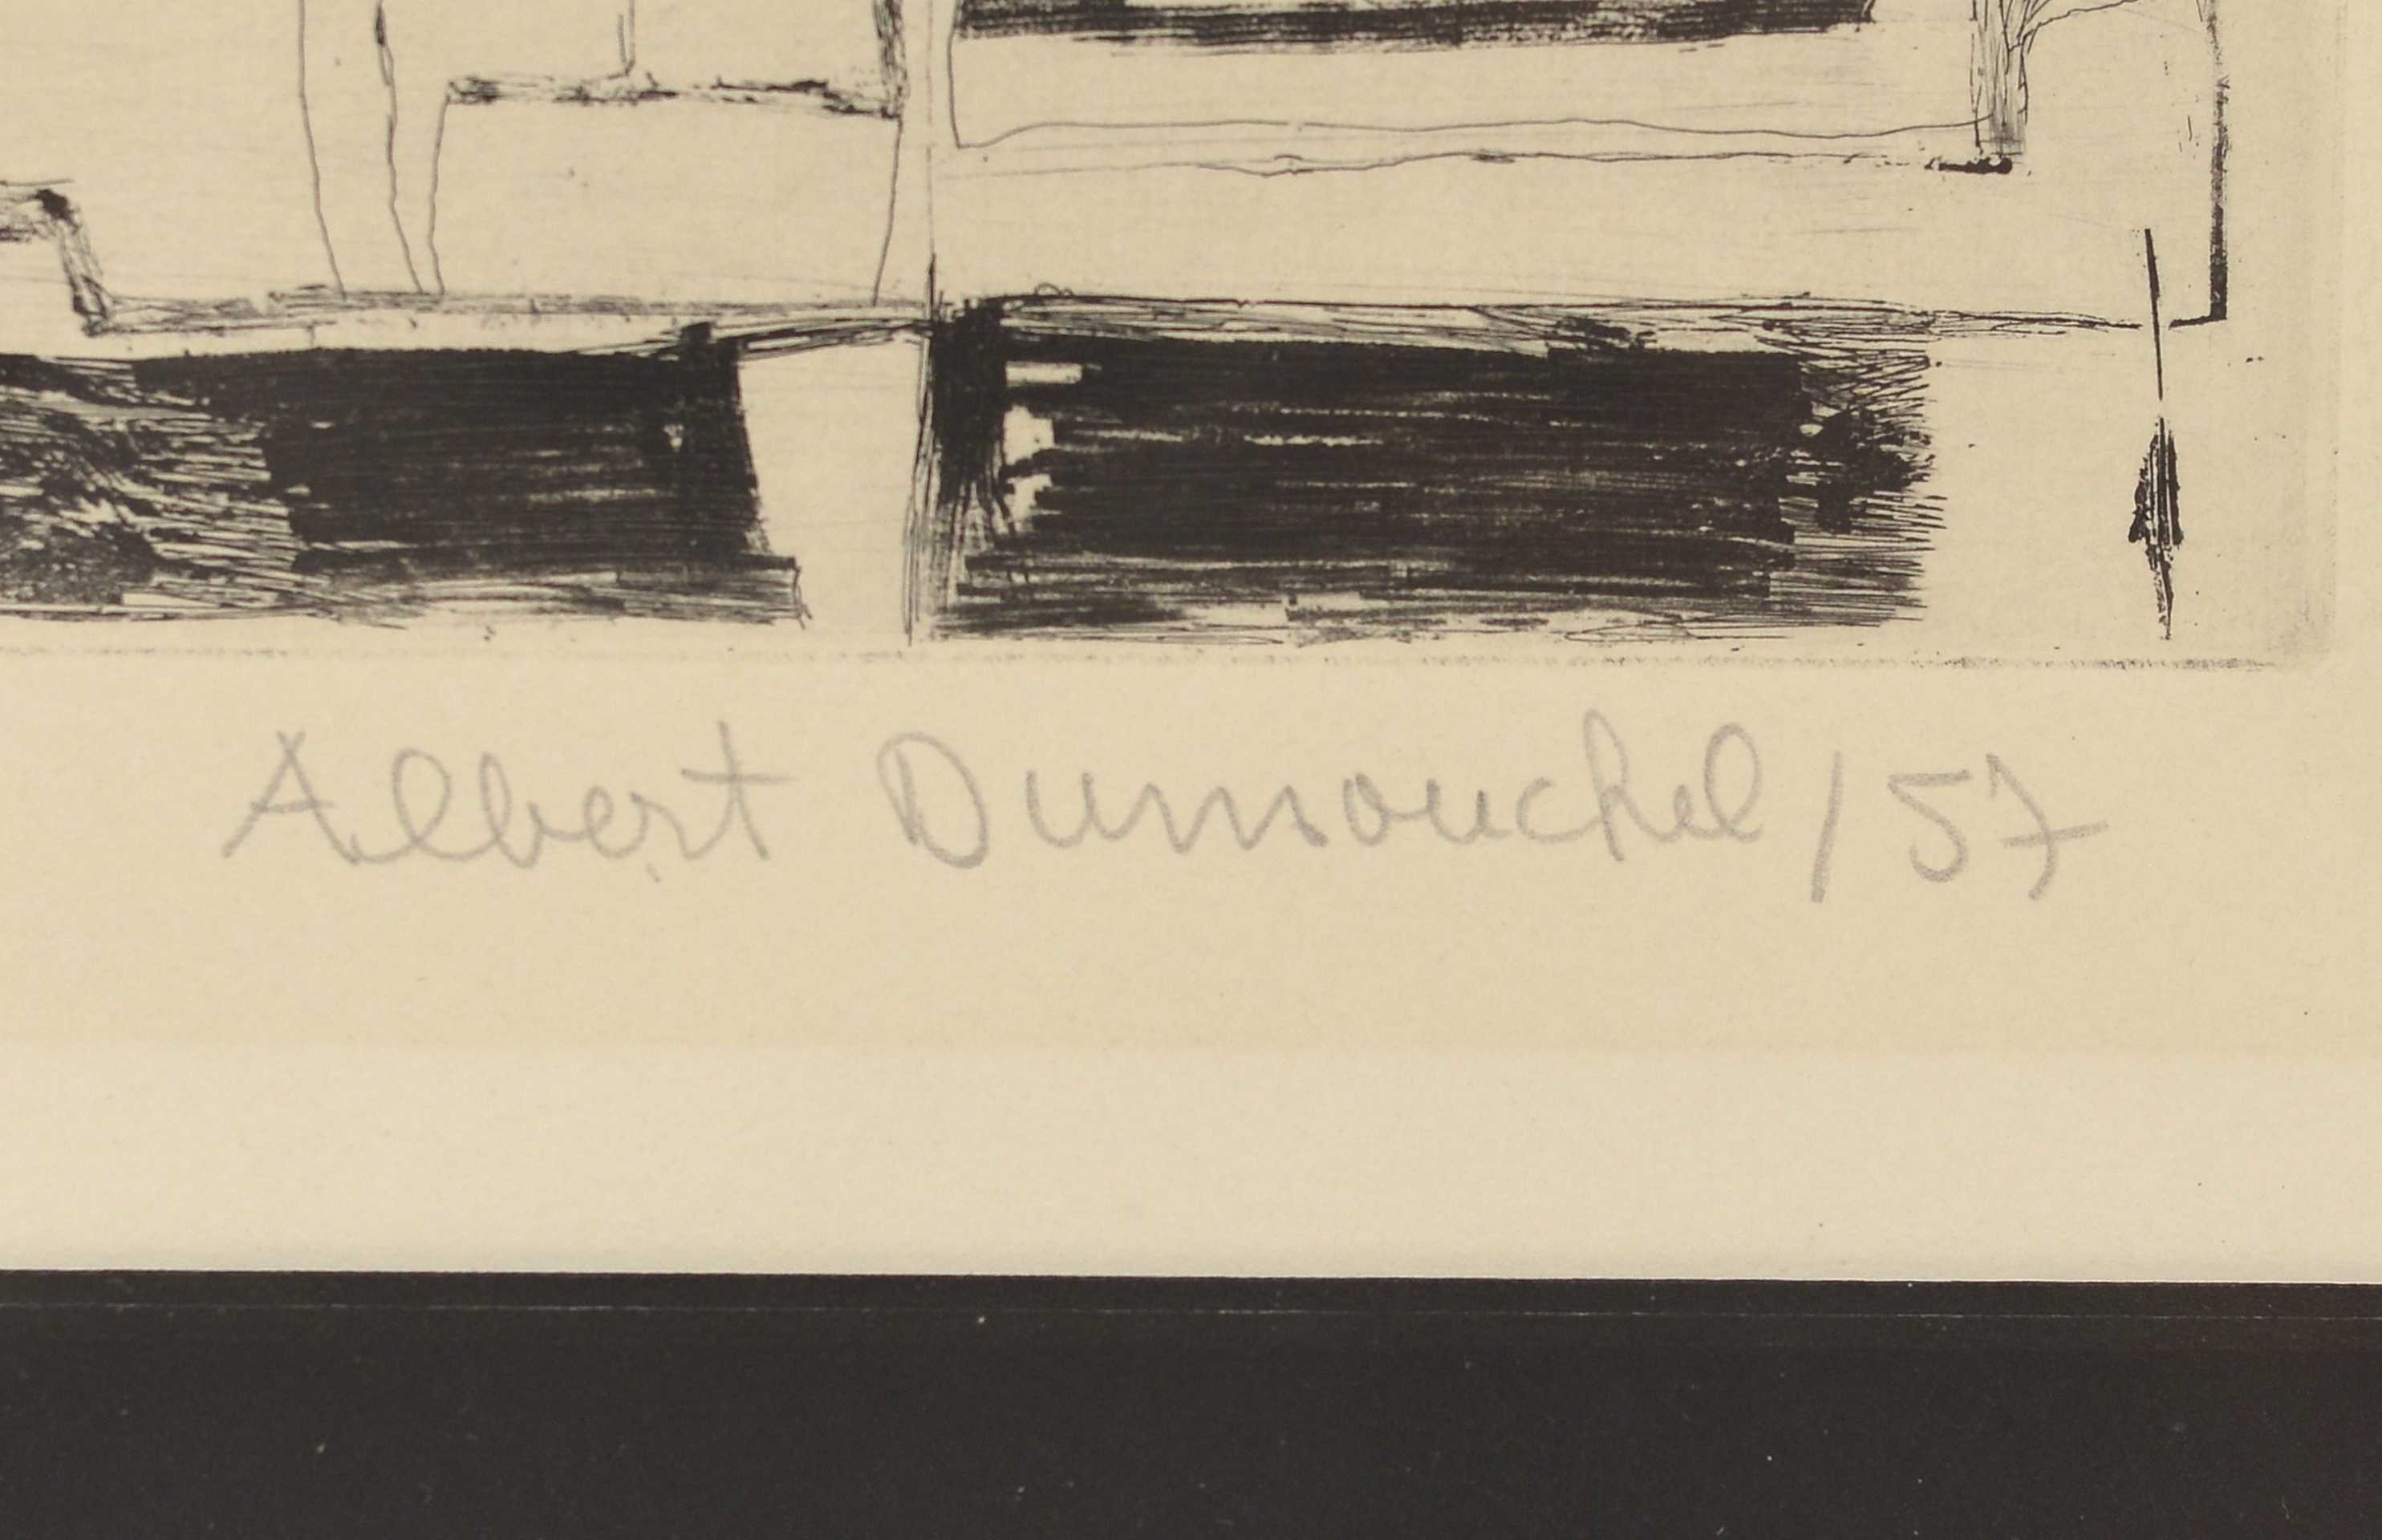 Albert Dumouchel / 57